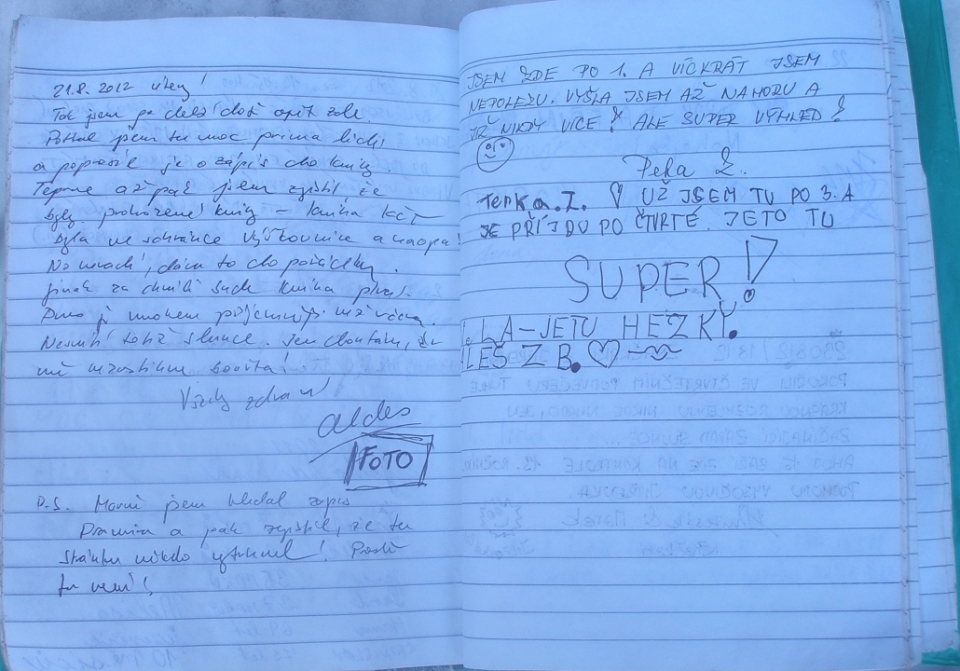 21.8.2012 úterý!
Tak jsem po delší době opět zde.
Potkal jsem tu moc prima lidi
a poprosil je o zápis do knihy.
Teprve až pak jsem zjistil že
byly prohozené knihy – kniha KČT
byla ve schránce
No nevadí, dám to do pořádku.
Jinak za chvíli bude kniha plná.
Dnes je mnohem příjemněji než včera.
Nesvítí totiž slunce. Jen doufám, že
mě nezastihne bouřka!
Všechny zdraví
aldes
FOTO
P.S. Marně jsem hledal zápis
a pak zjistil, že tu
stránku někdo vytrhnul! Prostě
tu není!
JSEM ZDE PO 1. A VÍCKRÁT JSEM
NEPOLEZU. VYŠLA JSEM AŽ NAHORU A
JIŽ NIKDY VÍCE! ALE SUPER VÝHLED!
Peka Ž.
Terka. I. UŽ JSEM TU PO 3. A
JE PŘÍJDU PO ČTVRTÉ. JETO TU
SUPER!
LLA-JETU HEZKÝ.
LEŠ Z B.